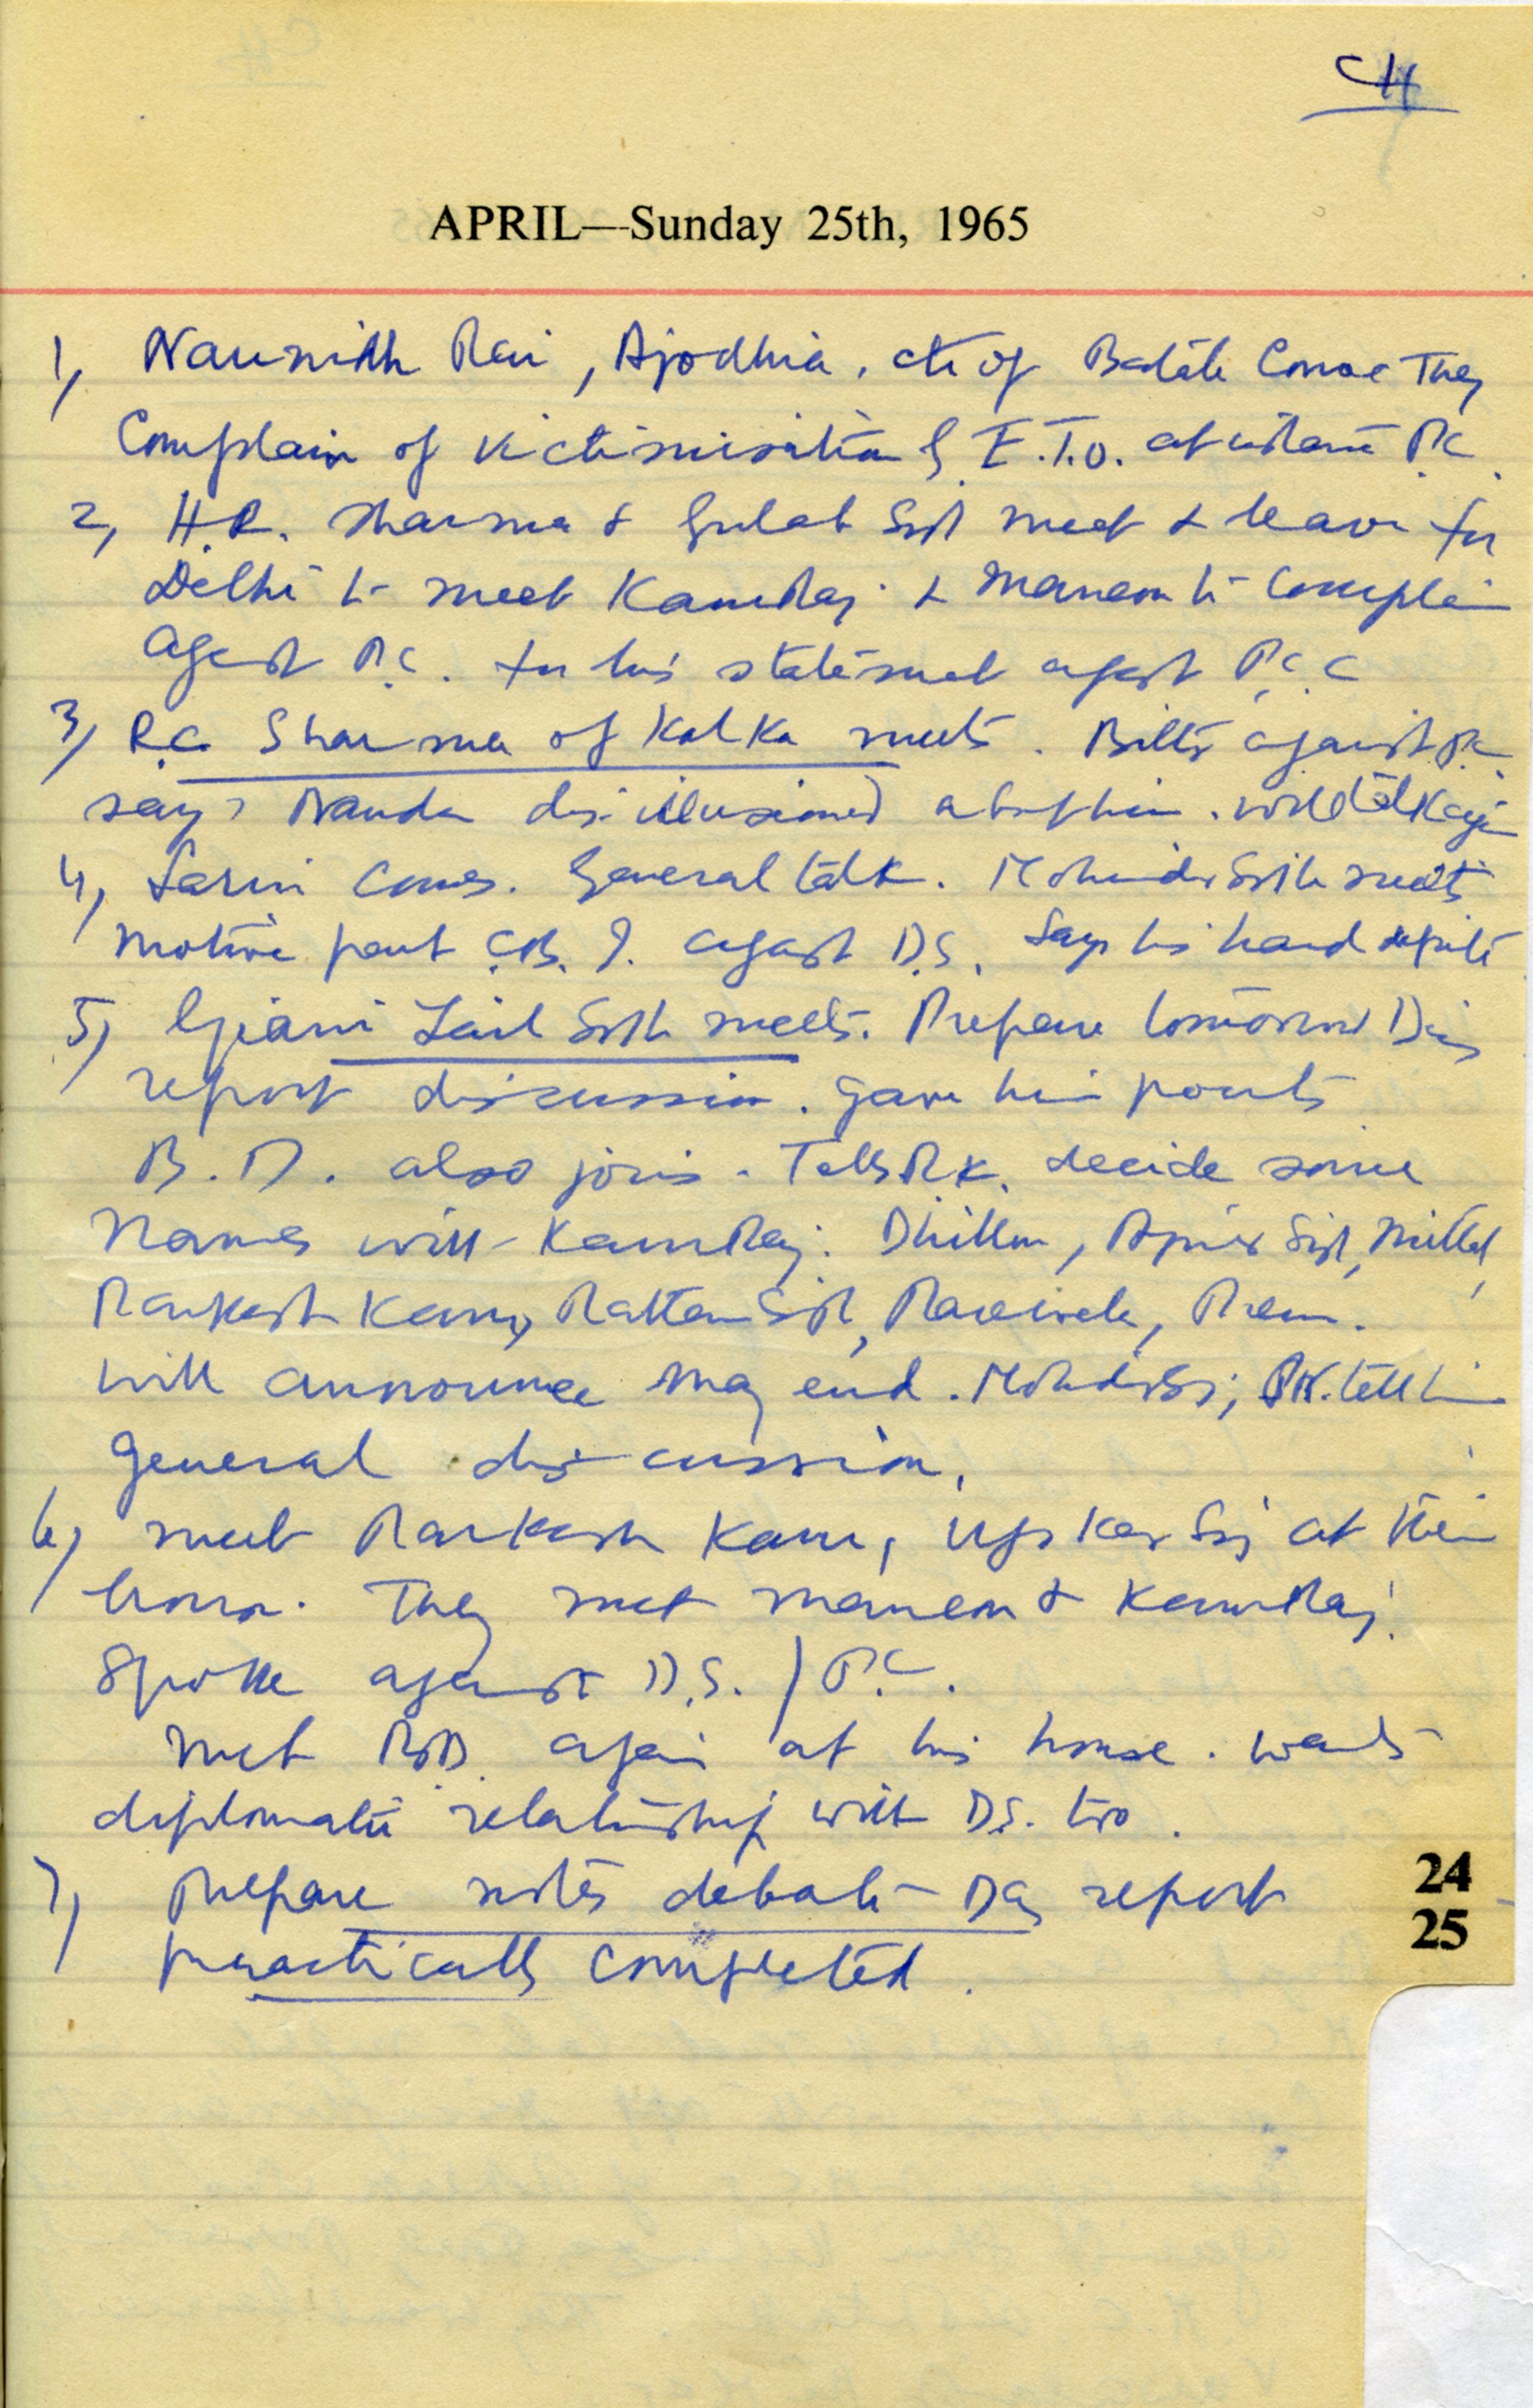 CH
APRIL—Sunday 25th, 1965
1) Naunidh Rai, Ajodhia, etc of Batala Come They
Complain of victimisation by E.T.O. at instance P.C.
2) H.R. Sharma & Gulab Singh meet & leave for
Delhi to meet KamRaj & Maneon to complain
against P.C. for his statement against P.C.C
3) R.C. Sharma of Kalka meets. Bitter against P.C.
says Nanda dis-illusioned about him. will talk again
4) Sarin comes. General talk. Mohinder Singh meets
motive part C.B.I. against D.S. Says his hand
5) Giani Zail Singh meets. Prepare tomorrow Das
report discussion. gave him points
B.D. also joins. Tells R.K. decide some
names with KamRaj. Dhillon, Ajmer Singh, Mittal,
Parkash Kaur, Rattan Singh, Rarewala, Prem.
will announce may end. Mohinder Si; P.K. tell him
general discussion.
6) meet Parkash Kaur, Ujjkar Si at their
house. They met Maneon & KamRaj.
Spoke against D.S. / P.C.
met B.D. again at his house. wants
diplomatic relationship with D.S. too.
7) Prepare notes debate Das report
practically completed.
24
25